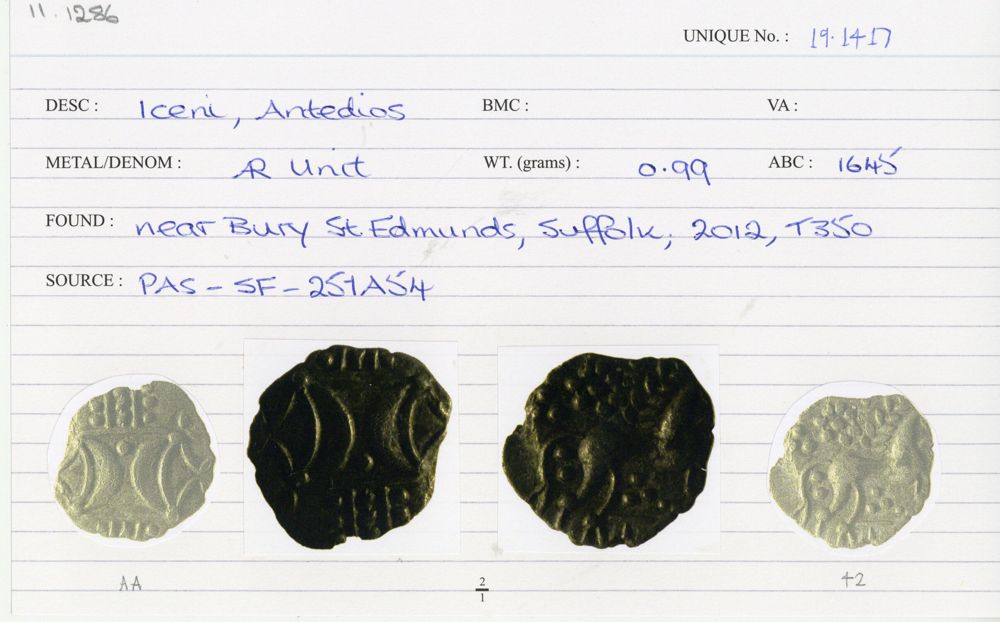 11.1286
UNIQUE No. : 19.1417
DESC : Iceni, Antedios BMC : VA :
METAL/DENOM : AR Unit WT. (grams) : 0.99 ABC : 1645
FOUND : near Bury St Edmunds, Suffolk, 2012, T350
SOURCE : PAS - SF - 251A54
AA 2/1 42